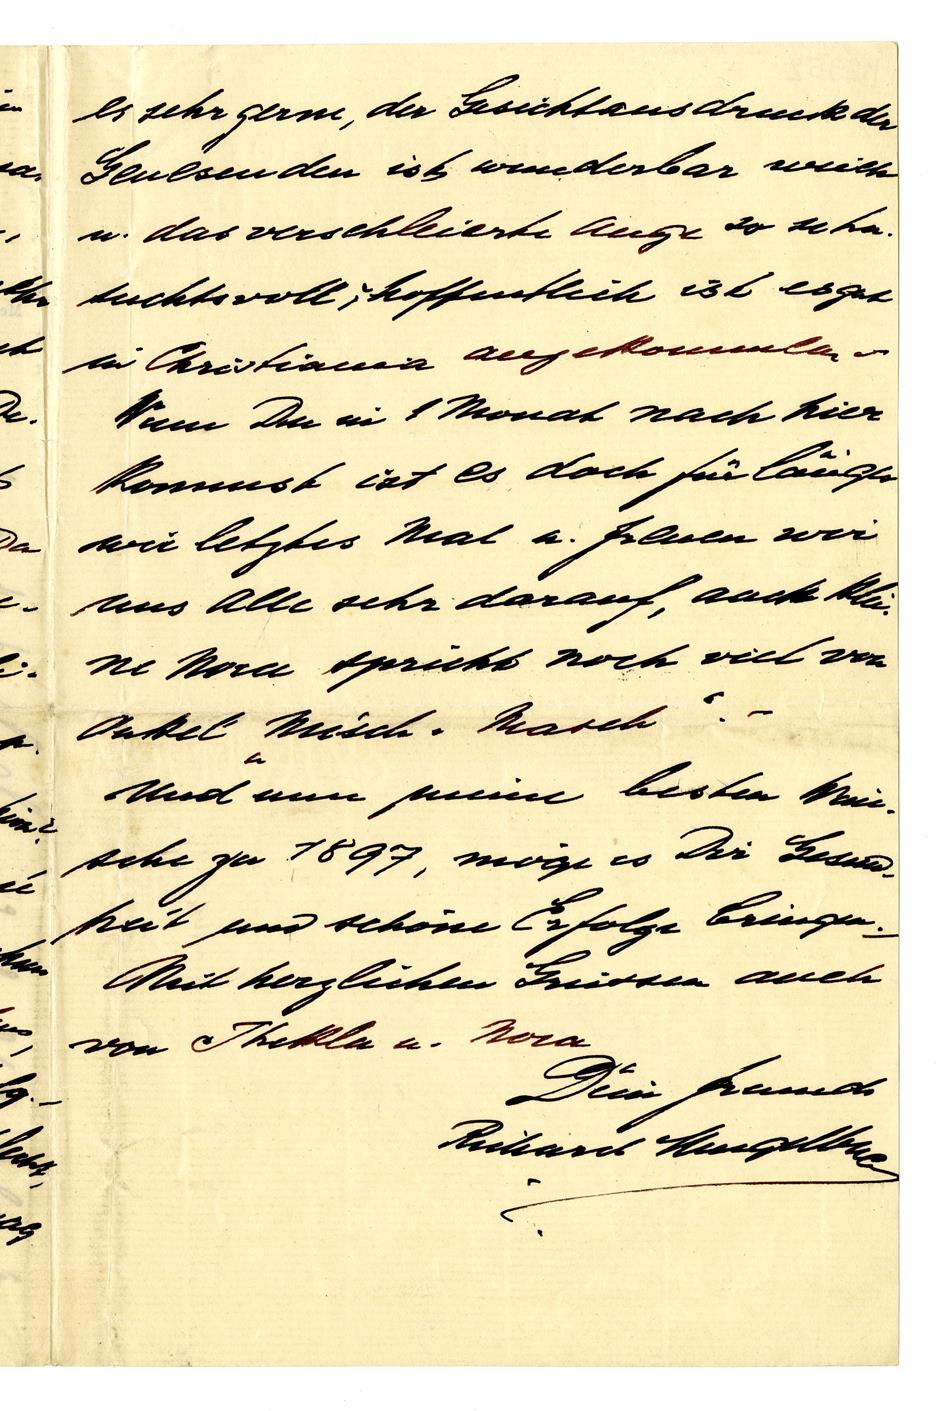 es sehr gerne, der Gesichtsausdruck der
Genesenden ist wunderbar weich
u. das verschleierte Auge so sehn-
suchtsvoll; hoffentlich ist es gut
in Christiania angekommen. –
Wenn Du in 1 Monat nach hier
kommst ist es doch für länger
wie letztes Mal u. freuen wir
uns Alle sehr darauf, auch klei-
ne Nora spricht noch viel von
Onkel „Misch-Masch“. –
Und nun meine besten Wün-
sche zu 1897, möge es Dir Gesund-
heit und schöne Erfolge bringen. –
Mit herzlichen Grüssen auch
von Thekla u. Nora
Dein Freund
Richard